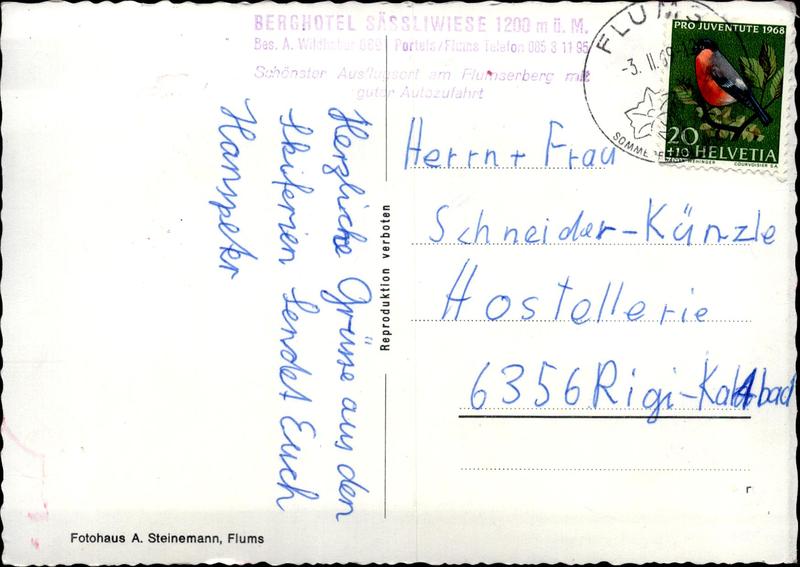 BERGHOTEL SÄSSLIWIESE 1200 m ü. M.
Bes. A. Portels/Flums Telefon 085 3 11 95
Schönster Ausflugsort am Flumserberg mit
guter Autozufahrt
FLUMS
-3. II. 69
SOMME
PRO JUVENTUTE 1968
20
+10 HELVETIA
COURVOISIER S.A.
Herzliche Grüsse aus den
Skiferien sendet Euch
Hanspeter
Reproduktion verboten
Herrn + Frau
Schneider-Künzle
Hostellerie
6356 Rigi-Kaltbad
r
Fotohaus A. Steinemann, Flums